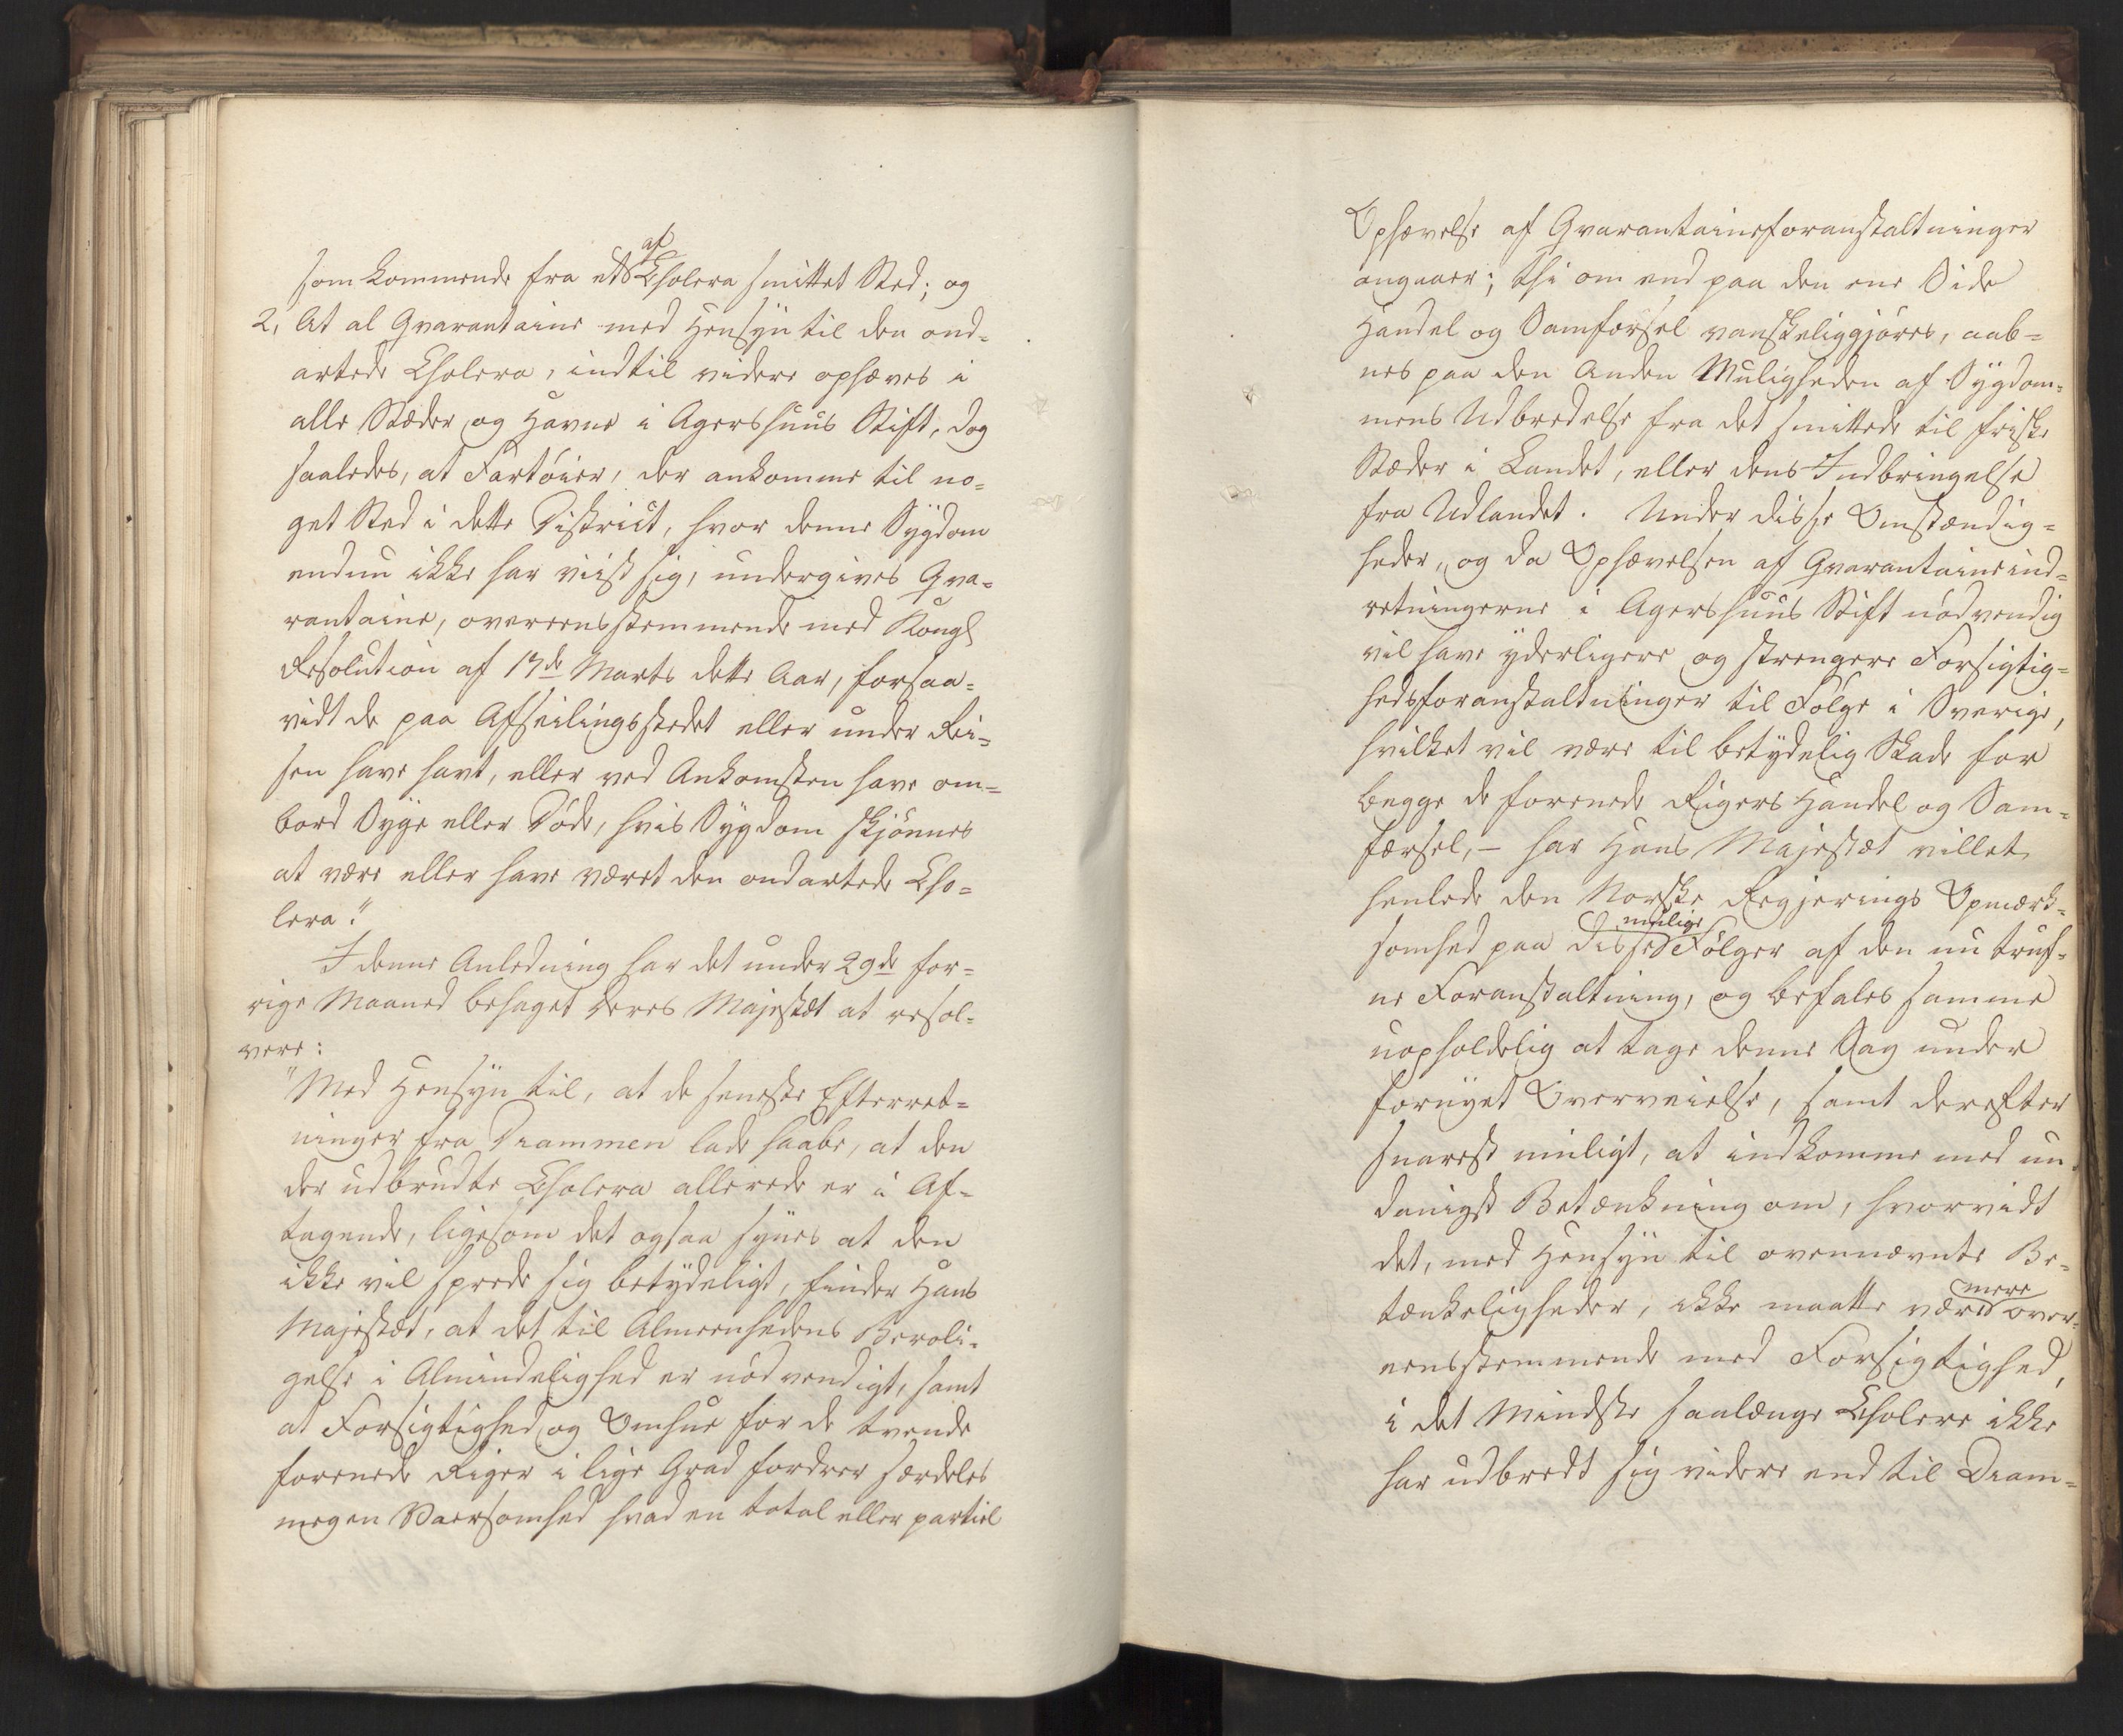 som kommende fra et af Cholera smittet Sted; og
2, At al Qvarantaine med Hensyn til den ond-
artede Cholera, indtil videre ophæves i
alle Stæder og Havne i Agershuus Stift, dog
saaledes, at Fartöier, der ankomme til no-
get Sted i dette District, hvor denne Sygdom
endnu ikke har viist sig, undergives Qva-
rantaine, overeensstemmende med Kongl
Resolution af 17de Marts dette Aar, forsaa-
vidt de paa Afseilingsstedet eller under Rei-
sen have havt, eller ved Ankomsten have om-
bord Syge eller Döde, hvis Sygdom skjönnes
at være eller have været den ondartede Cho-
lera."
I denne Anledning har det under 29de for-
rige Maaned behaget Deres Majestæt at resol-
vere:
"Med Hensyn til, at de seneste Efterret-
ninger fra Drammen lade haabe, at den
der udbrudte Cholera allerede er i Af-
tagende, ligesom det ogsaa synes at den
ikke vil sprede sig betydeligt, finder Hans
Majestæt, at det til Almeenhedens Beroli-
gelse i Almindelighed er nödvendigt, samt
at Forsigtighed og Omhue for de tvende
forenede Riger i lige Grad fordrer særdeles
megen Varsomhed hvad en total eller partiel
Ophævelse af Qvarantaineforanstaltninger
angaaer; thi om end paa den ene Side
Handel og Samfærsel vanskeliggjöres, aab-
nes paa den Anden Muligheden af Sygdom-
mens Udbredelse fra det smittede til friske
Stæder i Landet, eller dens Indbringelse
fra Udlandet. Under disse Omstændig-
heder, og da Ophævelsen af Qvarantaineind-
retningerne i Agershuus Stift nödvendig
vil have yderligere og strengere Forsigtig-
hedsforanstaltninger til Fölge i Sverige,
hvilket vil være til betydelig Skade for
begge de forenede Rigers Handel og Sam-
færsel, - har Hans Majestæt villet
henlede den Norske Regjerings Opmærk-
somhed paa disse mulige Fölger af den nu truf-
ne Foranstaltning, og befales samme
uopholdelig at tage denne Sag under
fornyet Overveielse, samt derefter
snarest muligt, at indkomme med un-
danigst Betænkning om, hvorvidt
det, med Hensyn til ovennævnte Be-
tænkeligheder, ikke maatte være mere over-
eensstemmende med Forsigtighed,
i det Mindste saalænge Cholera ikke
har udbredt sig videre end til Dram-